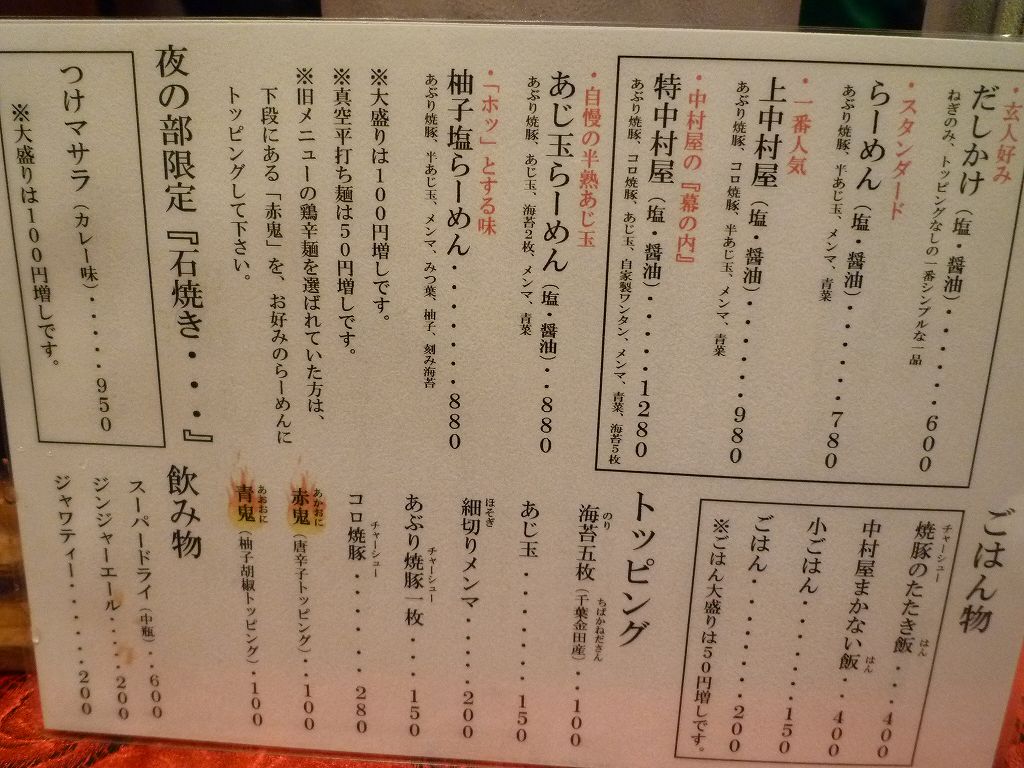 ・玄人好み
だしかけ（塩・醤油）・・・・・・600
ねぎのみ、トッピングなしの一番シンプルな一品
・スタンダード
らーめん（塩・醤油）・・・・・・780
あぶり焼豚、半あじ玉、メンマ、青菜
・一番人気
上中村屋（塩・醤油）・・・・・・980
あぶり焼豚、コロ焼豚、半あじ玉、メンマ、青菜
・中村屋の『幕の内』
特中村屋（塩・醤油）・・・・1280
あぶり焼豚、コロ焼豚、あじ玉、自家製ワンタン、メンマ、青菜、海苔5枚
・自慢の半熟あじ玉
あじ玉らーめん（塩・醤油）・・880
あぶり焼豚、あじ玉、海苔2枚、メンマ、青菜
・「ホッ」とする味
柚子塩らーめん・・・・・・・880
あぶり焼豚、半あじ玉、メンマ、みつ葉、柚子、刻み海苔
※大盛りは100円増しです。
※真空平打ち麺は50円増しです。
※旧メニューの鶏辛麺を選ばれていた方は、
下段にある「赤鬼」を、お好みのらーめんに
トッピングして下さい。
夜の部限定『石焼き・・・』
つけマサラ（カレー味）・・・・950
※大盛りは100円増しです。
ごはん物
焼豚のたたき飯・・・400
チャーシュー
はん
中村屋まかない飯・・400
はん
小ごはん・・・・・・150
ごはん・・・・・・・200
※ごはん大盛りは50円増しです。
トッピング
海苔五枚（千葉金田産）・・100
のり
ちばかねださん
あじ玉・・・・・・150
細切りメンマ・・・・200
ほそぎ
あぶり焼豚一枚・・・150
チャーシュー
コロ焼豚・・・・・280
チャーシュー
赤鬼（唐辛子トッピング）・・100
あかおに
青鬼（柚子胡椒トッピング）・100
あおおに
飲み物
スーパードライ（中瓶）・・600
ジンジャーエール・・・・200
ジャワティー・・・・・・200